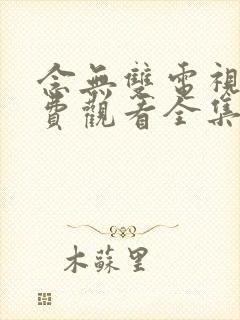 念無雙電視
費觀看全集
木蘇里